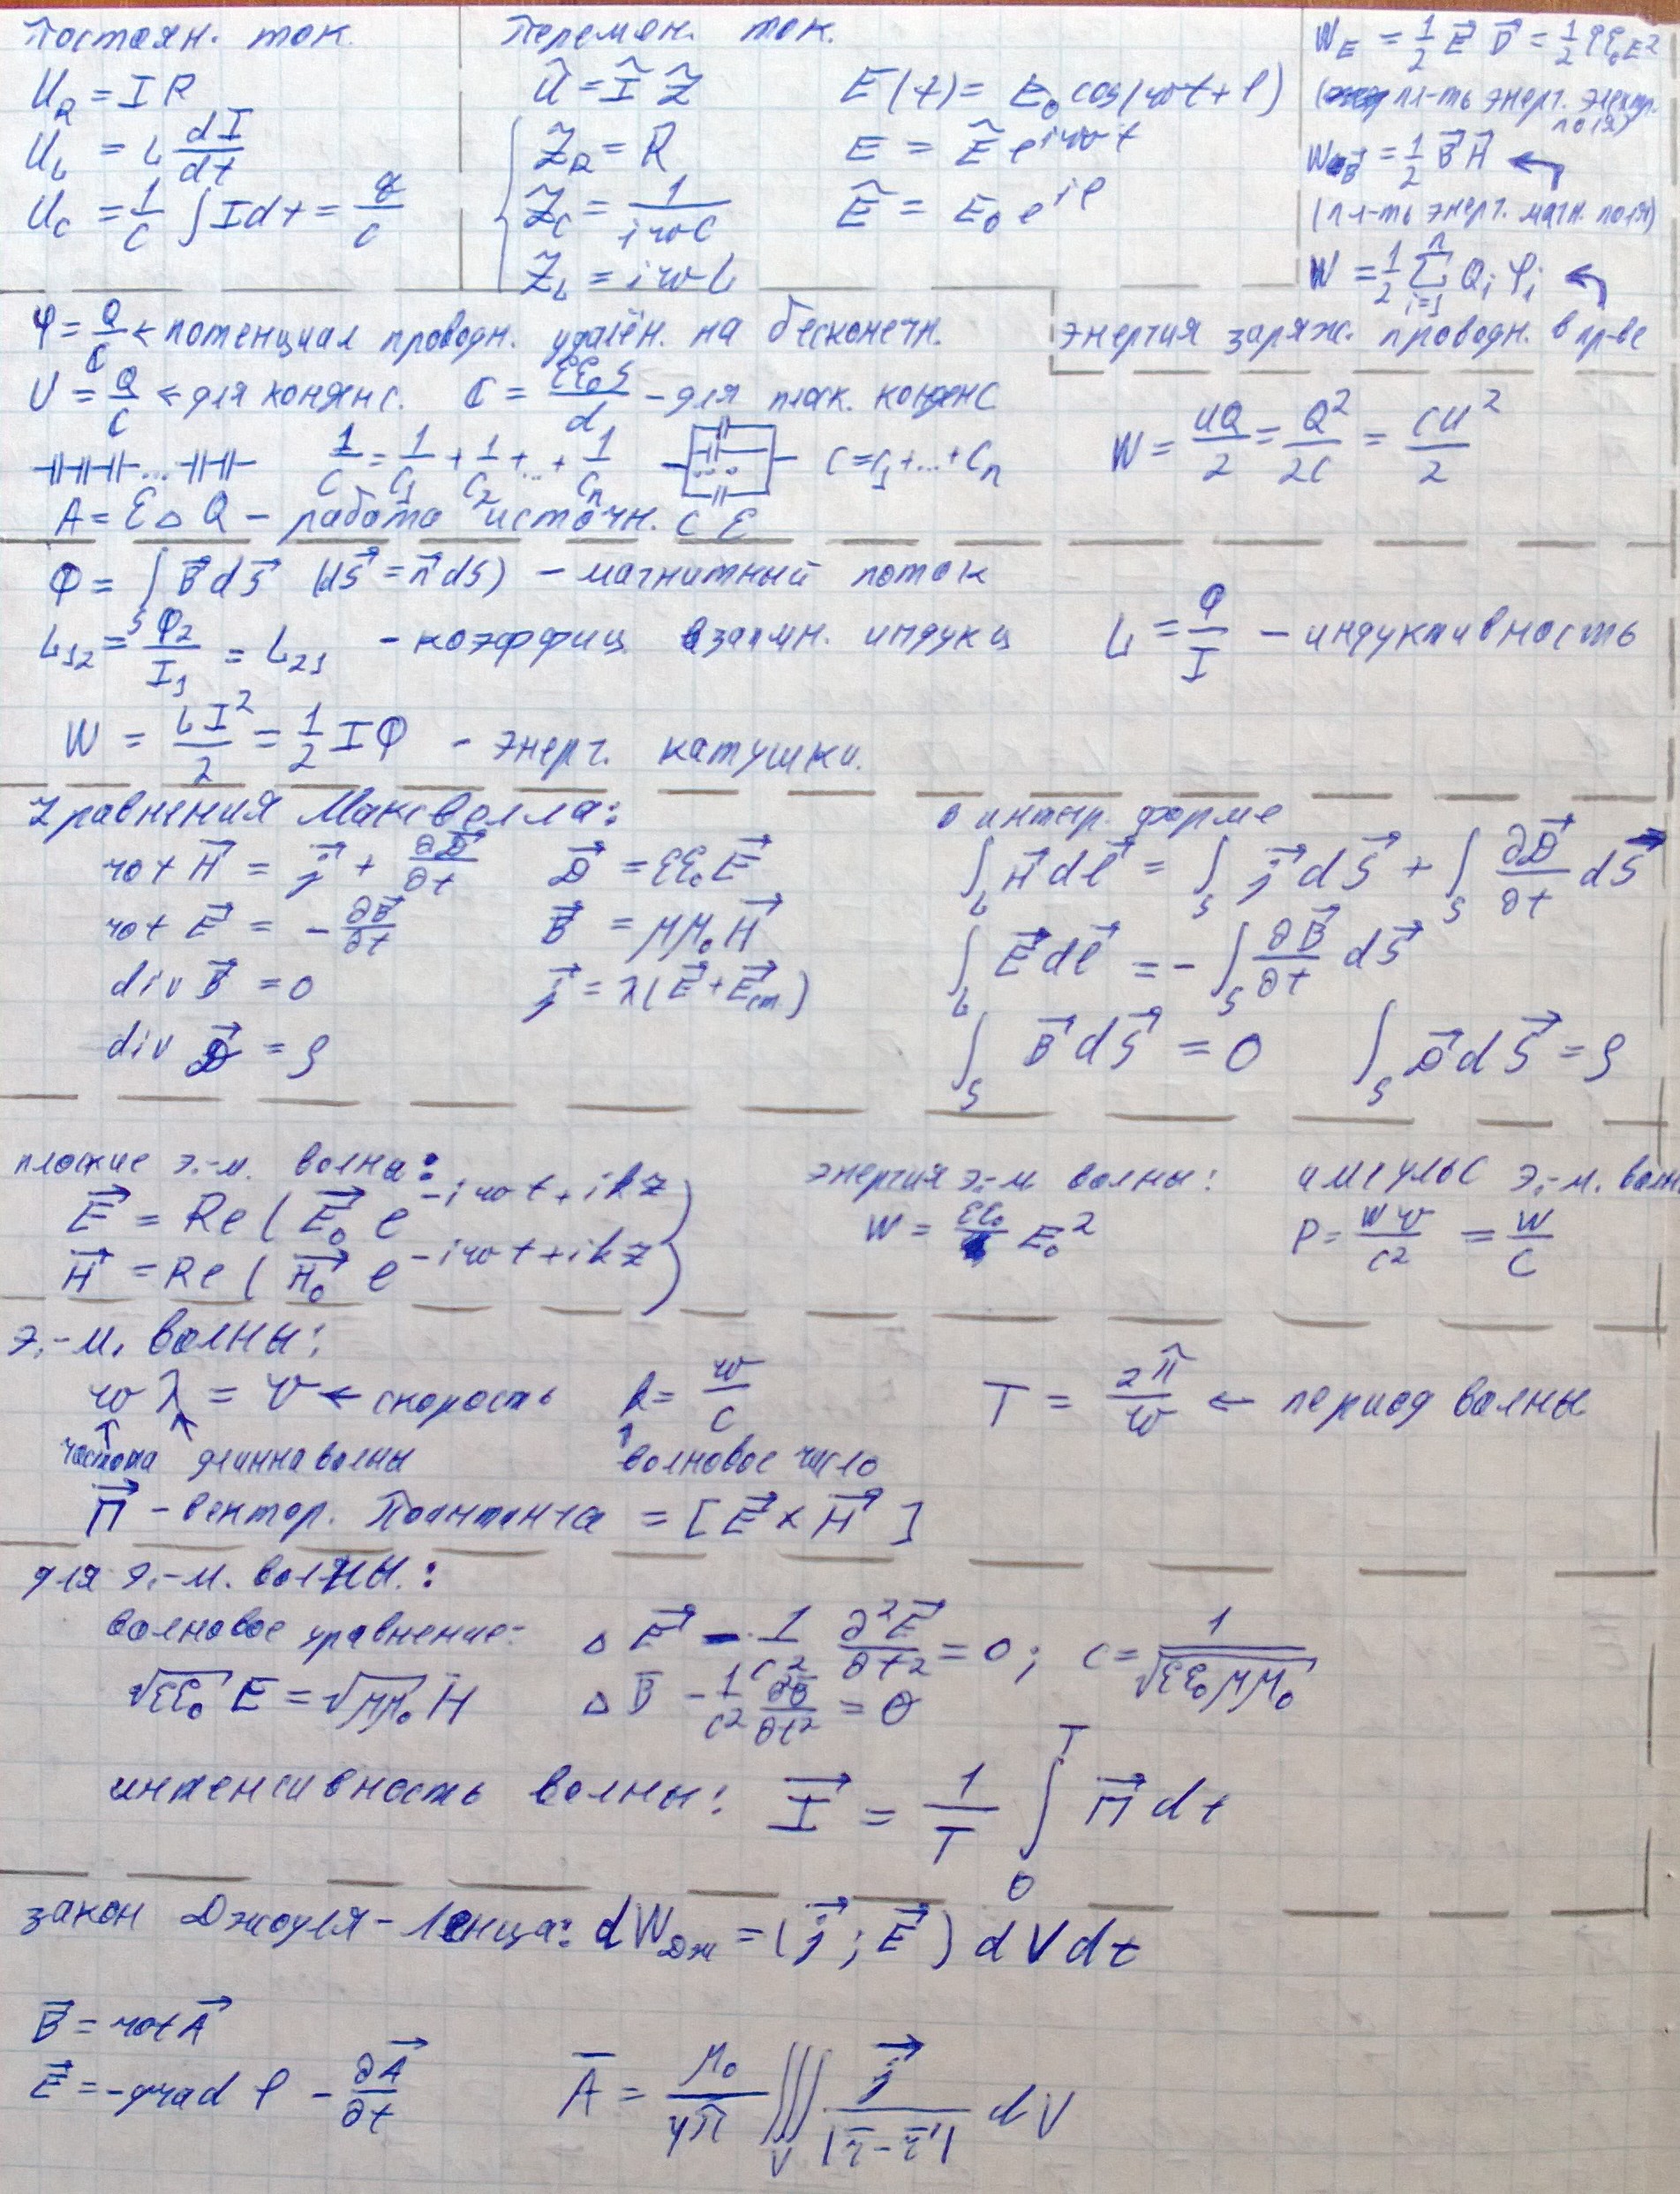 Постоян. ток.
U_R = I R
U_L = L dI/dt
U_C = 1/C ∫ I dt = q/C
Перемен. ток.
Ũ = Ĩ Z̃
Z̃_R = R
Z̃_C = 1/(iωC)
Z̃_L = iωL
E(t) = E₀ cos(ωt + φ)
E = Ẽ e^{iωt}
Ẽ = E₀ e^{iφ}
W_E = 1/2 E⃗ D⃗ = 1/2 εε₀E²
(пл-ть энерг. электр. поля)
W_B = 1/2 B⃗ H⃗ ←
(пл-ть энерг. магн. поля)
W = 1/2 Σ_{i=1}^{n} Q_i φ_i ←
энергия заряж. проводн. в пр-ве
φ = Q/C ← потенциал проводн. удалён. на бесконечн.
U = Q/C ← для конденс. C = εε₀S/d - для плак. конденс
1/C = 1/C₁ + 1/C₂ + ... + 1/C_n C = C₁ + ... + C_n
W = UQ/2 = Q²/2C = CU²/2
A = ℰ△Q - работа источн. с ℰ
Φ = ∫_S B⃗ dS⃗ (dS⃗ = n⃗ dS) - магнитный поток
L₁₂ = Φ₂/I₁ = L₂₁ - коэффиц взаимн. индукц L = Φ/I - индуктивность
W = LI²/2 = 1/2 IΦ - энерг. катушки.
Уравнения Максвелла:
rot H⃗ = j⃗ + ∂D⃗/∂t D⃗ = εε₀E⃗
rot E⃗ = - ∂B⃗/∂t B⃗ = μμ₀H⃗
div B⃗ = 0 j⃗ = λ(E⃗ + E⃗_ст.)
div D⃗ = ρ
в интегр. форме
∫_L H⃗ dl⃗ = ∫_S j⃗ dS⃗ + ∫_S ∂D⃗/∂t dS⃗
∫_L E⃗ dl⃗ = - ∫_S ∂B⃗/∂t dS⃗
∫_S B⃗ dS⃗ = 0 ∫_S D⃗ dS⃗ = ρ
плоские э.-м. волна:
E⃗ = Re ( E⃗₀ e^{-iωt+ikz} )
H⃗ = Re ( H⃗₀ e^{-iωt+ikz} )
энергия э.-м волны:
W = εε₀ E₀²
импульс э.-м. волн
P = Wv/c² = W/c
э.-м. волны:
ω λ = v ← скорость k = ω/c T = 2π/ω ← период волны
частота длинна волны волновое число
П⃗ - вектор. Поинтинга = [E⃗ × H⃗]
для э.-м. волны.:
волновое уравнение: △E⃗ - 1/c² ∂²E⃗/∂t² = 0; c = 1/√(εε₀μμ₀)
√(εε₀) E = √(μμ₀) H △B̄ - 1/c² ∂²B̄/∂t² = 0
интенсивность волны: I⃗ = 1/T ∫₀^T П⃗ dt
закон Джоуля-Ленца: dW_Дж = (j⃗; E⃗) dV dt
B⃗ = rot A⃗
E⃗ = -grad φ - ∂A⃗/∂t Ā = μ₀/4π ∭_V j⃗/|r̄ - r̄'| dV